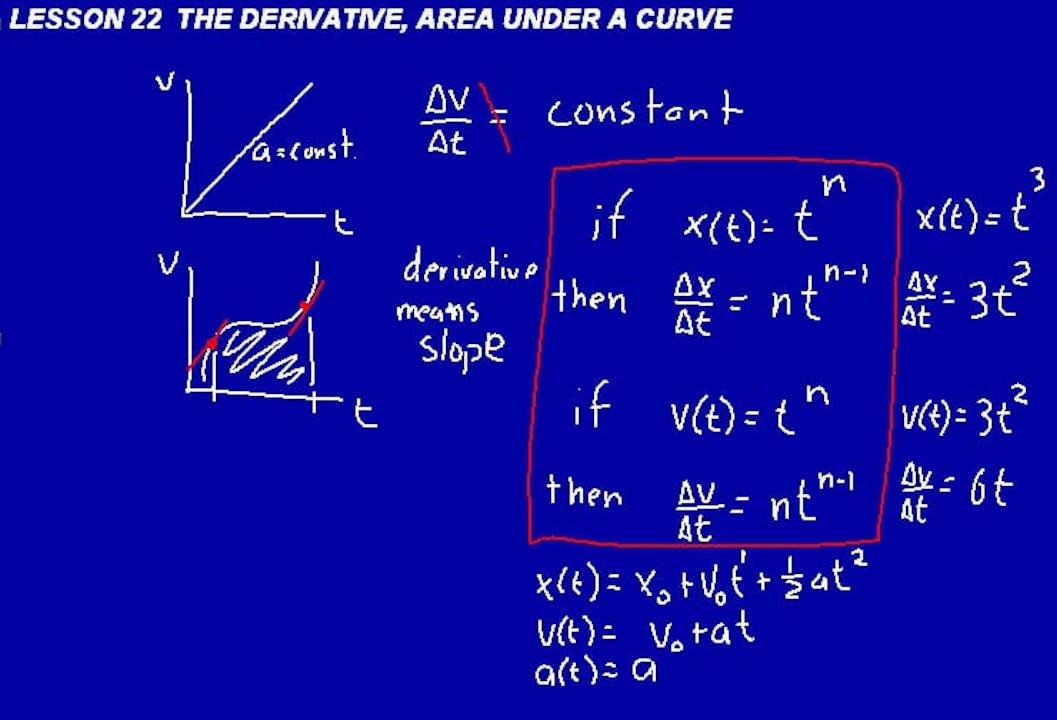 LESSON 22 THE DERIVATIVE, AREA UNDER A CURVE
v
a = const.
t
Δv/Δt ≠ constant
v
t
derivative
means
slope
if x(t) = tⁿ
then Δx/Δt = ntⁿ⁻¹
if v(t) = tⁿ
then Δv/Δt = ntⁿ⁻¹
x(t) = t³
Δx/Δt = 3t²
v(t) = 3t²
Δv/Δt = 6t
x(t) = x₀ + v₀t¹ + ½at²
v(t) = v₀ + at
a(t) = a